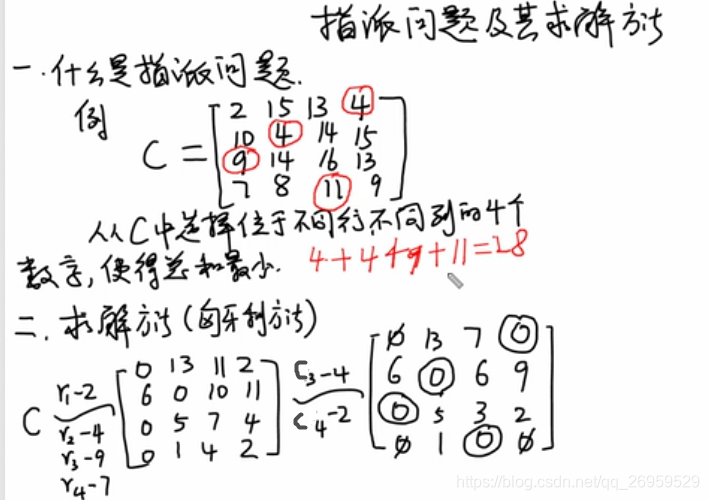 指派问题及其求解方法
一.什么是指派问题.
例
C = [
2 15 13 4
10 4 14 15
9 14 16 13
7 8 11 9
]
从C中选择位于不同行不同列的4个
数字,使得总和最小.
4+4+9+11=28
二.求解方法(匈牙利方法)
C
r₁-2
r₂-4
r₃-9
r₄-7
[
0 13 11 2
6 0 10 11
0 5 7 4
0 1 4 2
]
C₃-4
C₄-2
[
0 13 7 0
6 0 6 9
0 5 3 2
0 1 0 0
]
https://blog.csdn.net/qq_26959529